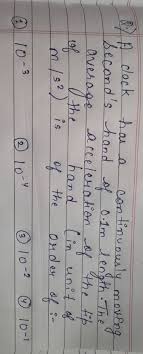 Q) A clock has a continuously moving
second's hand of 0.1m length. The
average acceleration of the tip
of the hand (in unit of
m/s²) is of the order of :-
① 10⁻³ ② 10⁻⁴ ③ 10⁻² ④ 10⁻¹